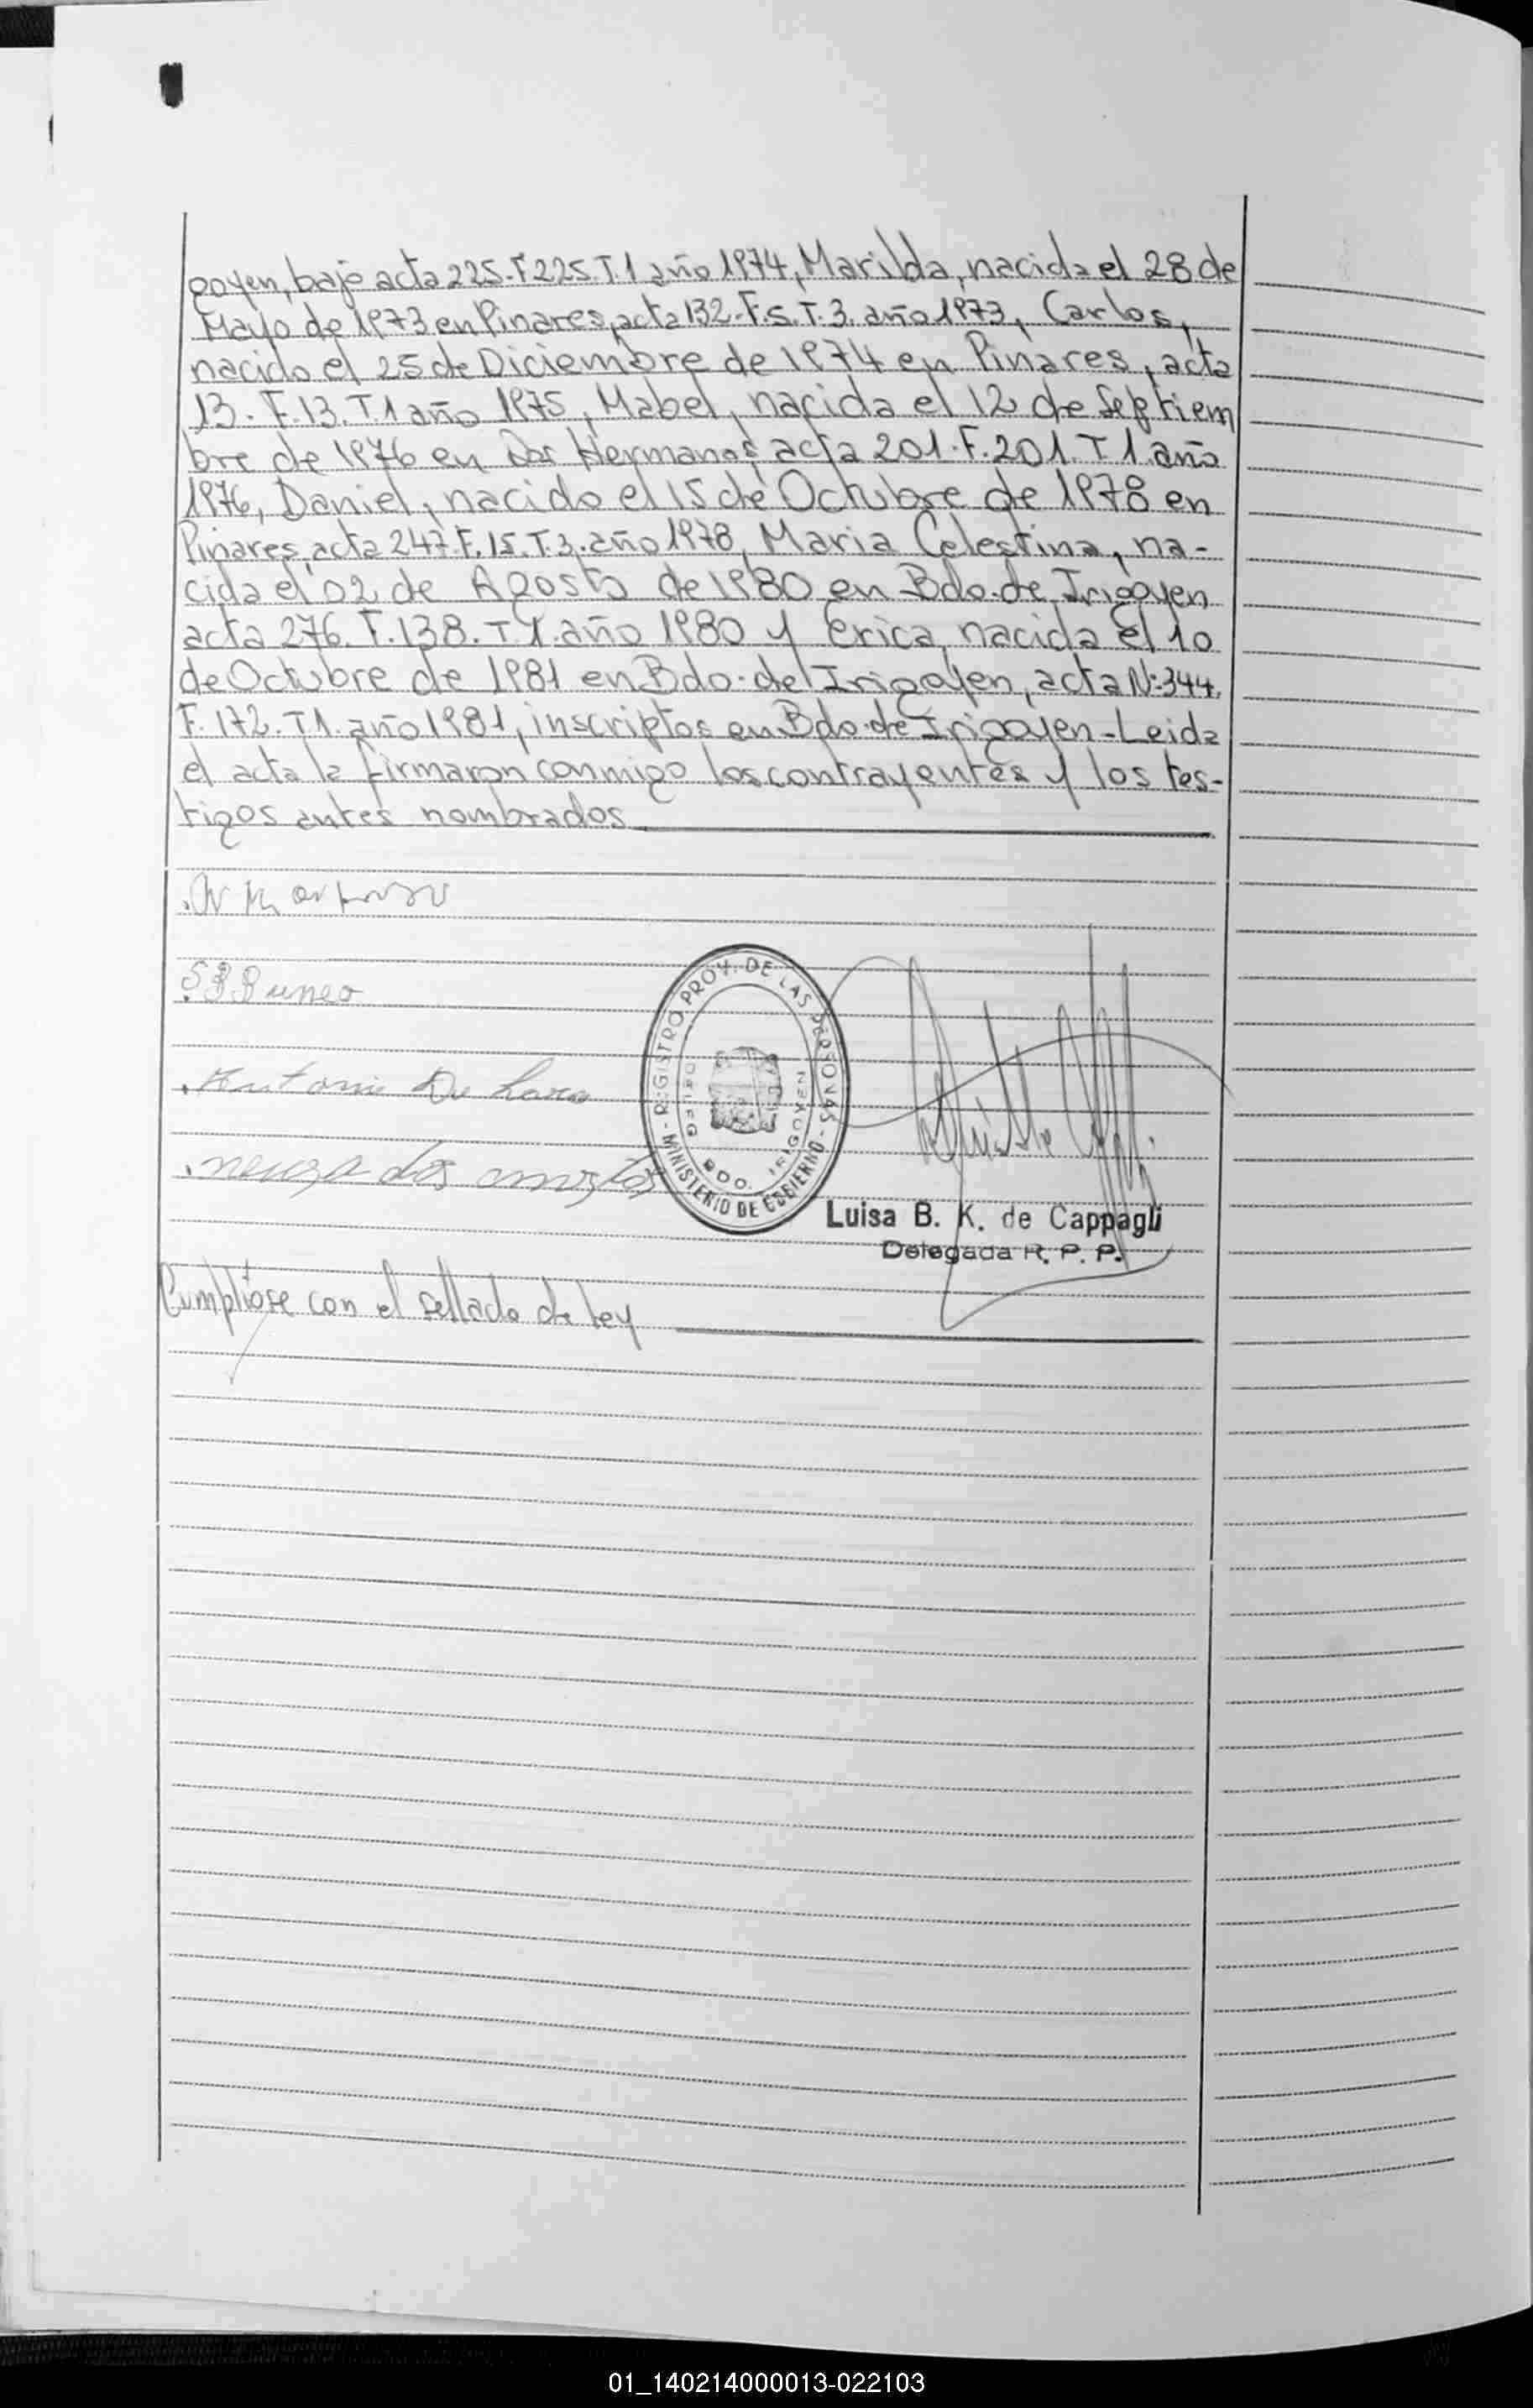 goyen, bajo acta 225-F 225.T.1 año 1974, Marilda, nacida el 28 de
Mayo de 1973 en Pinares, acta 132-F.5.T.3. año 1973, Carlos,
nacido el 25 de Diciembre de 1974 en Pinares, acta
13.F.13.T1 año 1975, Mabel, nacida el 12 de Septiem
bre de 1976 en Dos Hermanas acta 201.F.201.T 1.año
1976, Daniel, nacido el 15 de Octubre de 1978 en
Pinares, acta 247.F.15.T.3.año 1978, Maria Celestina, na-
cida el 02 de Agosto de 1980 en Bdo.de Irigoyen
acta 276.F.138.T.1.año 1980 y Erica, nacida el 10
de Octubre de 1981 en Bdo.de Irigoyen, acta N:344.
F.172.T1.año 1981, inscriptos en Bdo.de Irigoyen-Leida
el acta la firmaron conmigo los contrayentes y los tes-
tigos antes nombrados
Antonio De Lara
REGISTRO PROV. DE LAS PERSONAS - MINISTERIO DE GOBIERNO -
BDO. IRIGOYEN
Luisa B. K. de Cappagli
Delegada R. P. P.
Cumplióse con el sellado de ley
01_140214000013-022103